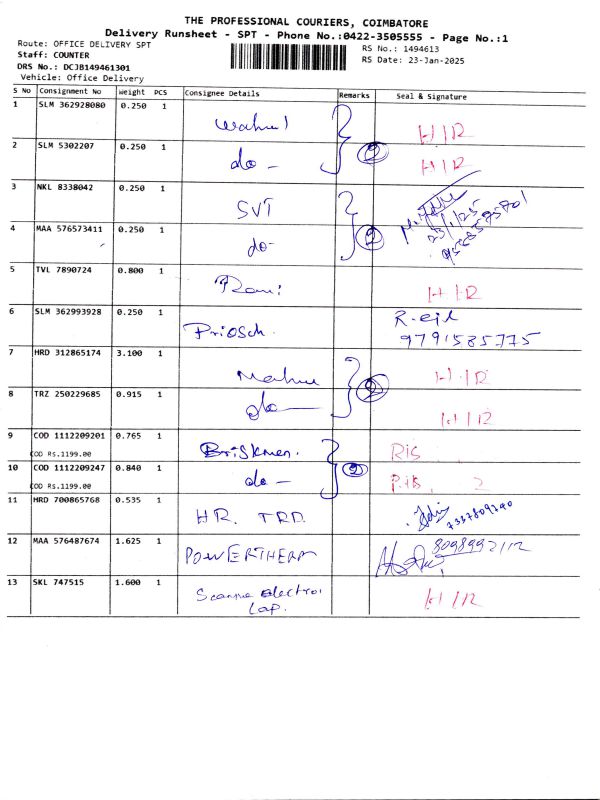 THE PROFESSIONAL COURIERS, COIMBATORE
Delivery Runsheet - SPT - Phone No.:0422-3505555 - Page No.:1
Route: OFFICE DELIVERY SPT
RS No.: 1494613
Staff: COUNTER
RS Date: 23-Jan-2025
DRS No.: DCJB149461301
Vehicle: Office Delivery
S No Consignment No Weight PCS Consignee Details Remarks Seal & Signature
1 SLM 362928080 0.250 1 H/R
2 SLM 5302207 0.250 1 do - 2 H/R
3 NKL 8338042 0.250 1 SVT
23/1/25
4 MAA 576573411 0.250 1 do- 2
5 TVL 7890724 0.800 1 H/R
6 SLM 362993928 0.250 1 9791585775
7 HRD 312865174 3.100 1 H/R
8 TRZ 250229685 0.915 1 do - 2 H/R
9 COD 1112209201 0.765 1 Briskmen.
COD Rs.1199.00
10 COD 1112209247 0.840 1 do - 2
COD Rs.1199.00
11 HRD 700865768 0.535 1 HR. TRD.
12 MAA 576487674 1.625 1 POWERTHERM
13 SKL 747515 1.600 1 H/R